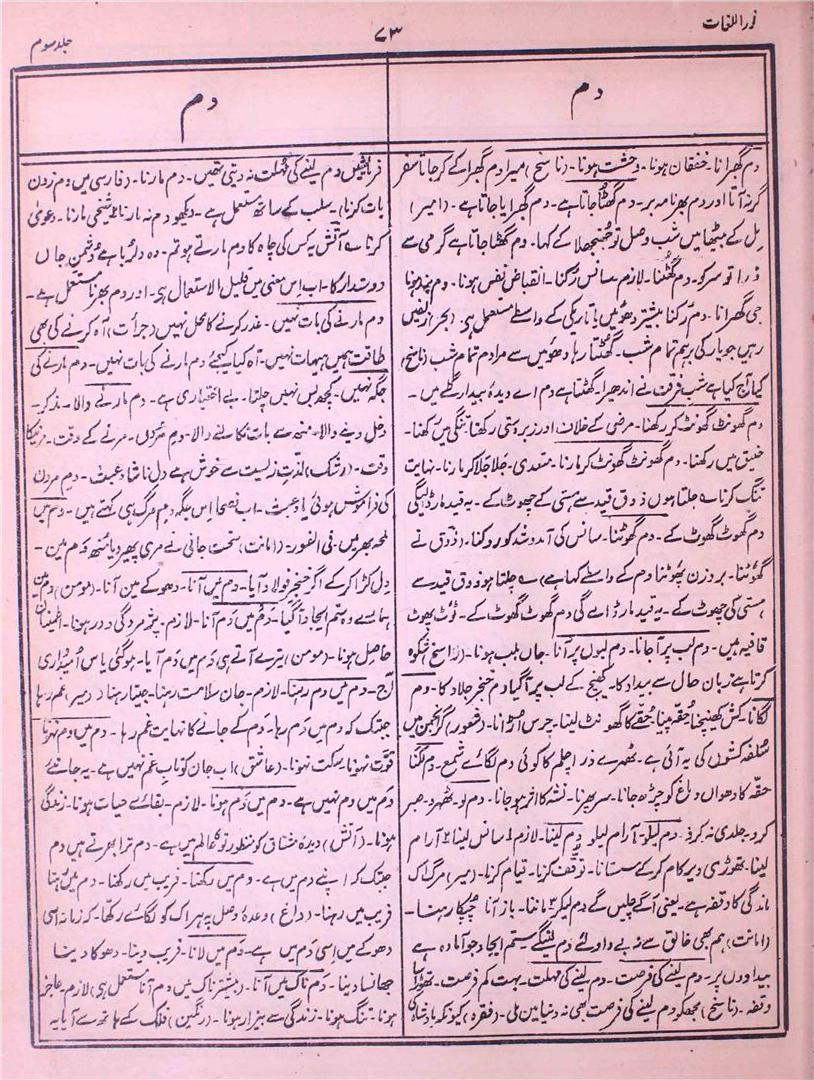 نور اللغات
۷۳
جلد سوم
دم
دم
دم گھبرانا۔ خفقان ہونا۔ وحشت ہونا۔ (ناسخ) میرا دم گھبرا کے کر جاتا سفر
گر نہ آتا اور دم بھر نامہ بر۔ دم گھٹا جاتا ہے۔ دم گھبرایا جاتا ہے۔ (امیر)
مل کے بیٹھا میں شب وصل تو جھنجھلا کے کہا۔ دم گھٹا جاتا ہے گرمی سے
ذرا تو سرکو۔ دم گھٹنا۔ لازم۔ سانس رکنا۔ انقباض نفس ہونا۔ دم بند ہونا
جی گھبرانا۔ دم رکنا بیشتر دھوئیں یا تاریکی کے واسطے مستعمل ہی (بحر)
رہیں جو یار کی برہم تمام شب۔ گھٹتا رہا دھوئیں سے مرا دم تمام شب (ناسخ)
کیا آج کیا ہے شب فرقت نے اندھیرا۔ گھٹتا ہے دم اے دیدۂ بیدار گلے میں۔
دم گھونٹ گھونٹ کر رکھنا۔ مرضی کے خلاف اور زبردستی رکھنا تنگی میں رکھنا۔
ضیق میں رکھنا۔ دم گھونٹ گھونٹ کر مارنا۔ متعدی۔ جلا جلا کر مارنا۔ نہایت
تنگ کرنا ے چلتا ہوں ذوق قید سے ہستی کے چھوٹ کے۔ یہ قید مار ڈالیگی
دم گھوٹ گھوٹ کے۔ دم گھوٹنا۔ سانس کی آمد و شد کو روکنا۔ (ذوق نے
گھوٹنا۔ بروزن پھوٹنا دم کے واسطے کہا ہے) ے چلتا ہو ذوق قید سے
ہستی کی چھوٹ کے۔ یہ قید مار ڈالے گی دم گھوٹ گھوٹ کے۔ ٹوٹ پھوٹ
قافیہ ہیں۔ دم لب پر آ جانا۔ دم لبوں پر آنا۔ جاں بلب ہونا۔ (راسخ) شکوہ
کرتا ہے زبان حال سے بیداد کا۔ کھنچ کے لب پر آ گیا دم خنجر جلاد کا۔ دم
لگانا۔ کش کھینچنا حقہ پینا حقے کا گھونٹ لینا۔ چرس اڑانا۔ (قصور)
سلفہ کشوں کی یہ آئی ہے۔ ٹھہرے ذرا چلم کا کوئی دم لگائے شمع۔ دم لگنا
حقہ کا دھواں دماغ کو چڑھ جانا۔ سر پھرنا۔ نشہ کا اثر ہو جانا۔ دم لو۔ ٹھہرو۔ صبر
کرو۔ جلدی نہ کرو۔ دم لیلو۔ آرام لیلو۔ دم لینا۔ لازم ۱ سانس لینا ۲ آرام
لینا۔ تھوڑی دیر کام کر کے سستانا۔ توقف کرنا۔ قیام کرنا۔ (میر) مرگ اک
ماندگی کا وقفہ ہے۔ یعنی آگے چلیں گے دم لیکر ۳ ماننا۔ باز آنا چپکا رہنا۔
(امانت) ہم بھی خالق سے نہ بے داد لئے دم لینگے ستم ایجاد جو آمادہ ہے
بیدادوں پر۔ دم لینے کی فرصت۔ دم لینے کی مہلت۔ بہت کم فرصت۔ تھوڑا سا
وقفہ۔ (ناسخ) مجھکو دم لینے کی فرصت بھی نہ دنیا میں ملی۔ (فقرہ) کیونکہ بادشاہی
فرمائشیں دم لینے کی مہلت نہ دیتی تھیں۔ دم مارنا۔ (فارسی میں دم زدن
بات کرنا)۔ سلب کے ساتھ مستعمل ہے۔ دیکھو دم نہ مارنا ۲ شیخی مارنا۔ دعویٰ
کرنا ے آتش یہ کس کی چاہ کا دم مارتے ہو تم۔ وہ دلربا ہے دشمن جاں
دوستدار کا۔ اب اس معنی میں قلیل الاستعمال ہی۔ اور دم بھرنا مستعمل ہے۔
دم مارنے کی بات نہیں۔ عذر کرنے کا محل نہیں (جرأت) آہ کرنے کی بھی
طاقت ہمیں ہیہات نہیں۔ آہ کیا کیجئے دم مارنے کی بات نہیں۔ دم مارنے کی
جگہ نہیں۔ کچھ بس نہیں چلتا۔ بے اختیاری ہے۔ دم مارنے والا۔ مذکر۔
دخل دینے والا۔ منھ سے بات نکالنے والا۔ دم مردن۔ مرنے کے وقت۔
وقت۔ (رشک) لذت زیست سے خوش ہے دل ناشاد عبث۔ دم مردن
کی فراموش ہوئی یاد عبث۔ اب فصحا اس جگہ دم مرگ ہی کہتے ہیں۔ دم میں
لمحہ بھر میں۔ فی الفور۔ (امانت) سخت جانی نے مری پھیر دیا منھ دم میں۔
دل کڑا کر کے اگر خنجر فولاد آیا۔ دم میں آنا۔ دھوکے میں آنا۔ (مومن)
ایجاد آگیا۔ دم میں دم آنا۔ لازم۔ پژمردگی دور ہونا۔ اطمینان
حاصل ہونا۔ (مومن) تیرے آتے ہی دم میں دم آیا۔ ہو گئی یاس امیدواری
آج۔ دم میں دم رہنا۔ لازم۔ جان سلامت رہنا۔ جیتا رہنا (میر) غم رہا
جبتک کہ دم میں دم رہا۔ دم کے جانے کا نہایت غم رہا۔ دم میں دم نہونا
قوت نہونا۔ سکت نہونا۔ (عاشق) اب جان کو تاب غم نہیں ہے۔ یہ جانئے
دم میں دم نہیں ہے۔ دم میں دم ہونا۔ لازم۔ بقائے حیات ہونا۔ زندگی
ہونا۔ (آتش) دیدۂ مشتاق کو منظور تو عالم میں ہے۔ دم ترا بھرتے ہیں دم
جبتک کہ اپنے دم میں ہے۔ دم میں رکھنا۔ فریب میں رکھنا۔ دم میں رہنا
فریب میں رہنا۔ (داغ) وعدۂ وصل پہ ہر اک کو لگائے رکھا۔ کہ زمانہ اسی
دھوکے میں اسی دم میں ہے۔ دم میں لانا۔ فریب دینا۔ دھوکا دینا
جھانسا دینا۔ دم ناک میں آنا۔ (بیشتر ناک میں دم آنا مستعمل ہی) لازم۔ عاجز
ہونا۔ تنگ ہونا۔ زندگی سے بیزار ہونا۔ (رنگین) فلک کے ہاتھ سے آیا یہ